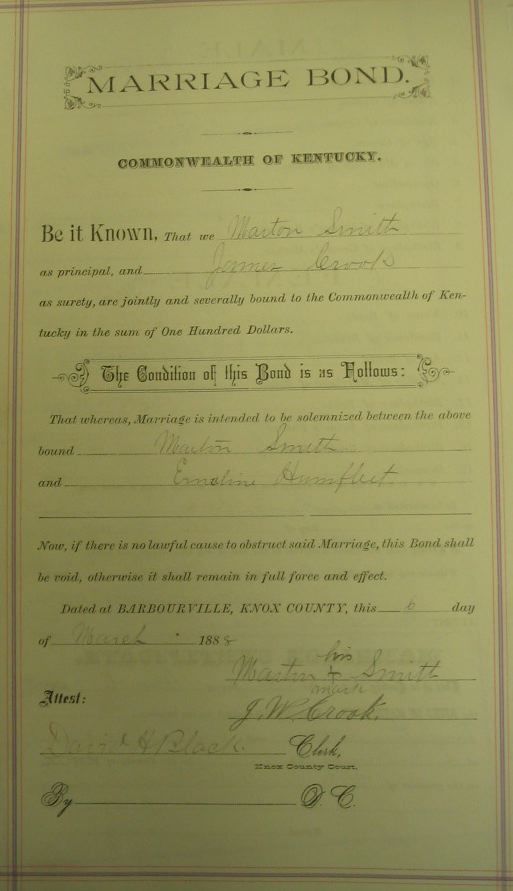 MARRIAGE BOND.
COMMONWEALTH OF KENTUCKY.
Be it Known, That we Marton Smith
as principal, and Crook
as surety, are jointly and severally bound to the Commonwealth of Ken-
tucky in the sum of One Hundred Dollars.
The Condition of this Bond is as Follows:
That whereas, Marriage is intended to be solemnized between the above
bound Marton Smith
and Emaline Humfleet
Now, if there is no lawful cause to obstruct said Marriage, this Bond shall
be void, otherwise it shall remain in full force and effect.
Dated at BARBOURVILLE, KNOX COUNTY, this 6 day
of March 1888
his
Martin + Smith
mark
Attest:
J. W. Crook.
David H Black. Clerk,
Knox County Court.
By D. C.